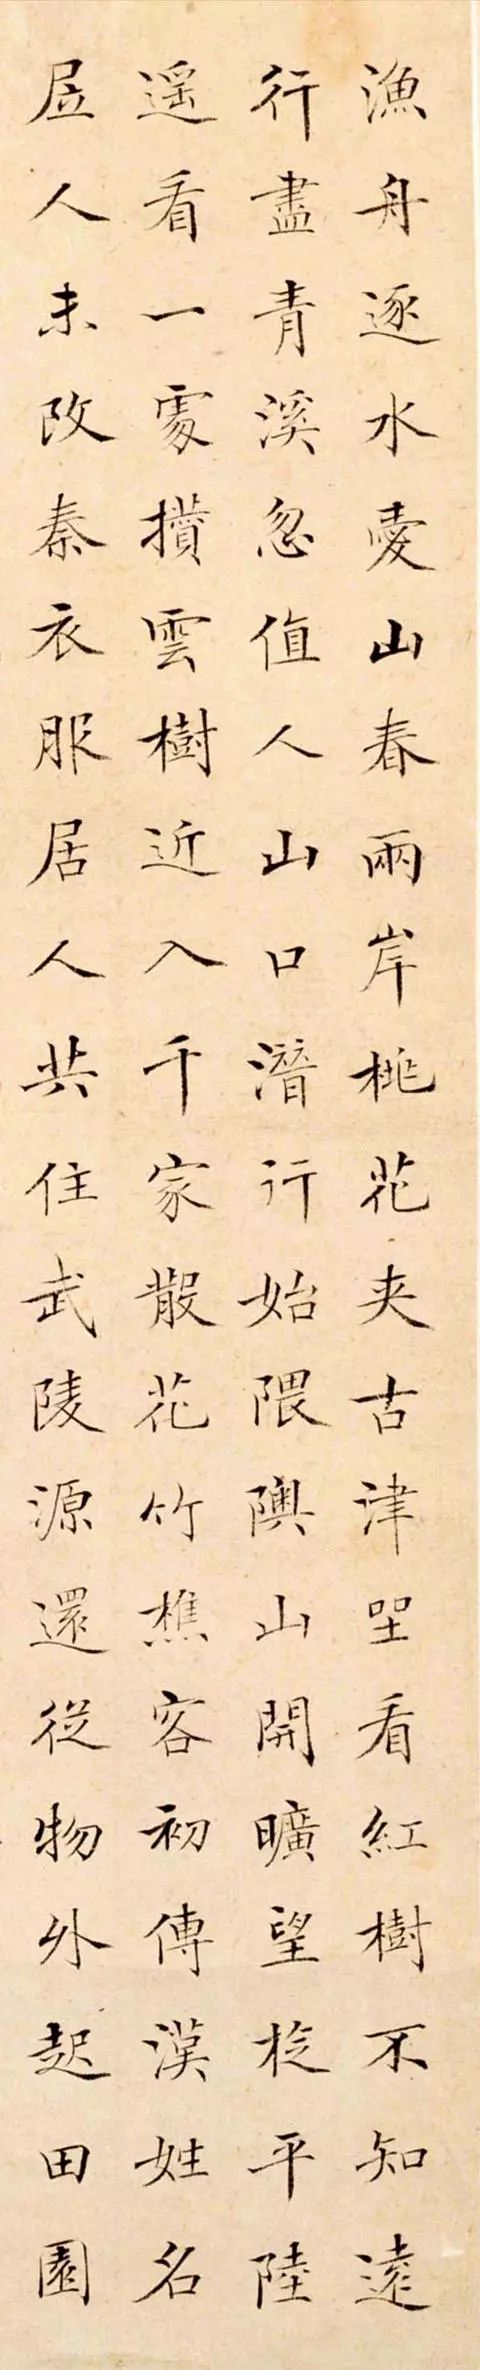 漁舟逐水愛山春兩岸桃花夾古津坐看紅樹不知遠
行盡青溪忽值人山口潛行始隈隩山開曠望旋平陸
遥看一處攢雲樹近入千家散花竹樵客初傳漢姓名
居人未改秦衣服居人共住武陵源還從物外起田園